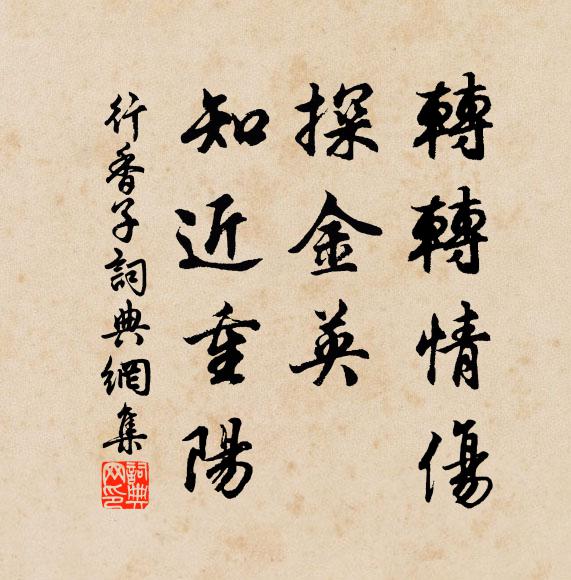 轉轉情傷
探金英
知近重陽
行香子詞典網集
詞典网印